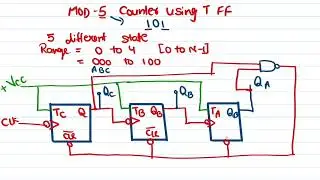 MOD-5 Counter using T FF
101
5 different state
Range = 0 to 4 [0 to N-1]
= 000 to 100
ABC
+Vcc
QC QB QA
TC Q TB QB TA QB
CLK
CLR CLR CLR